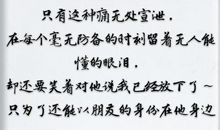 只有这种痛无处宣泄，
在每个毫无防备的时刻留着无人能
懂的眼泪，
却还要笑着对他说我已经放下了~
只为了还能以朋友的身份在他身边